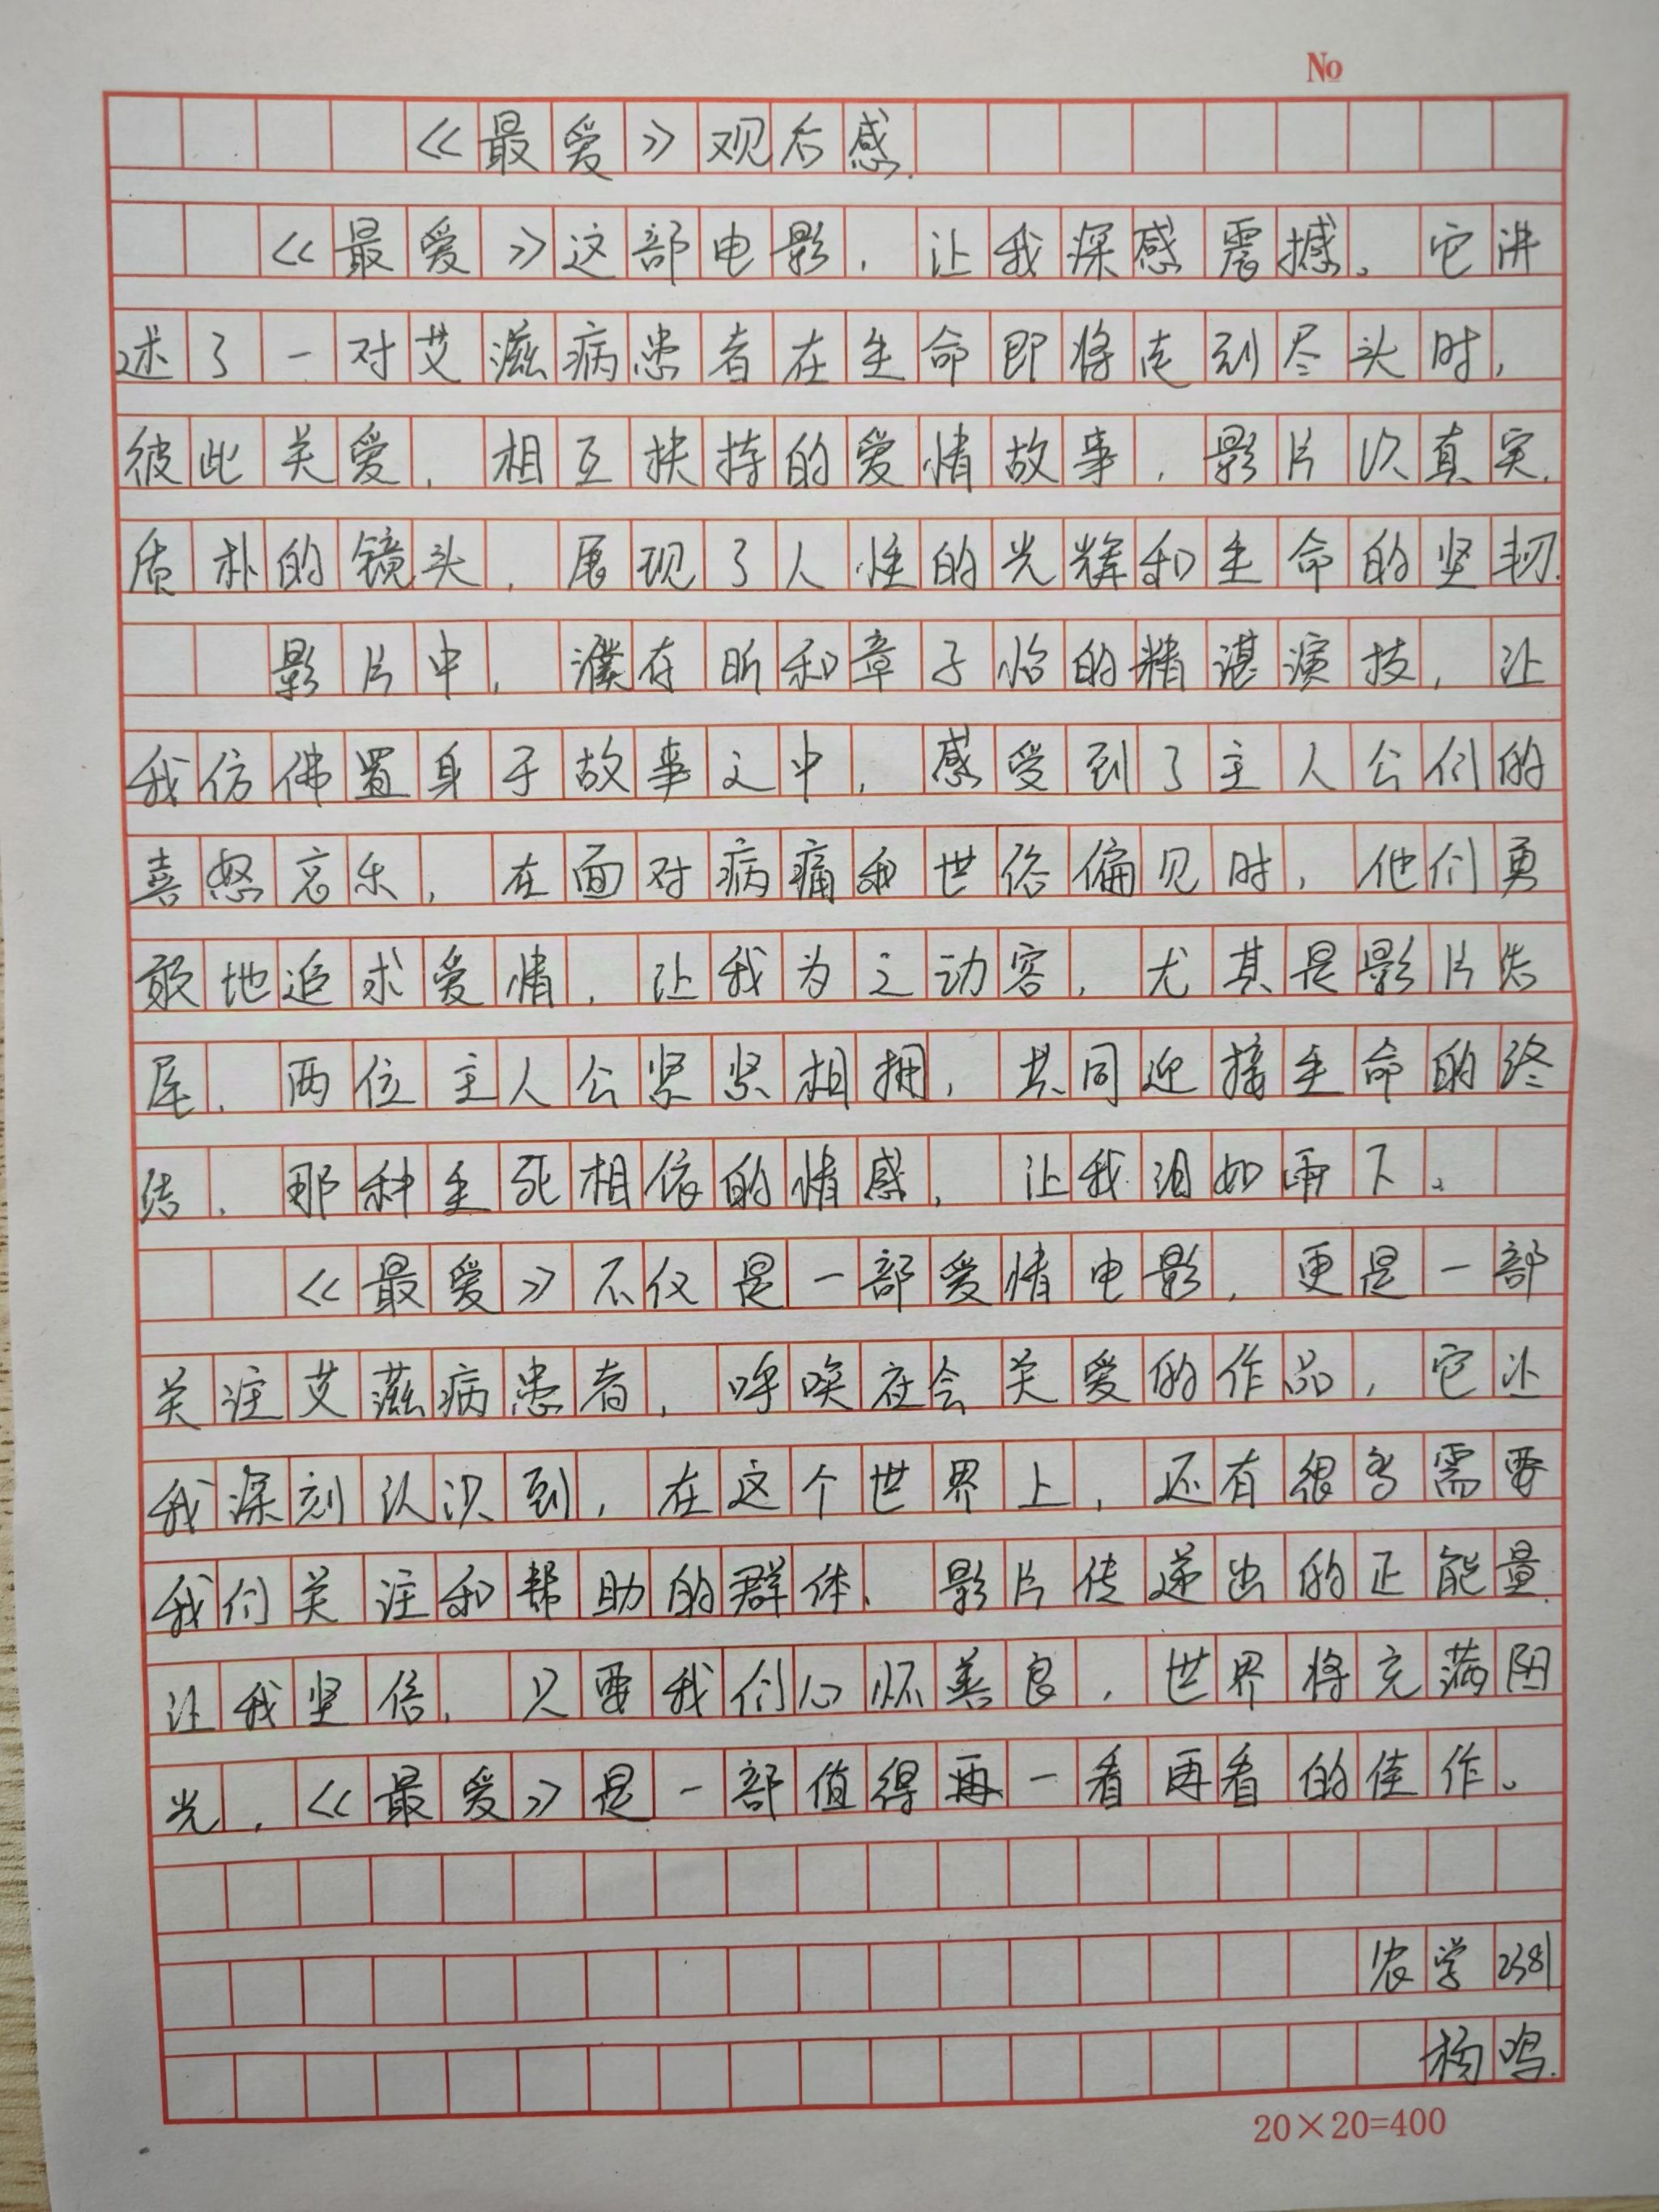 No
《最爱》观后感.
《最爱》这部电影，让我深感震撼。它讲
述了一对艾滋病患者在生命即将走到尽头时，
彼此关爱，相互扶持的爱情故事，影片以真实.
质朴的镜头，展现了人性的光辉和生命的坚韧.
影片中，濮存昕和章子怡的精湛演技，让
我仿佛置身于故事之中，感受到了主人公们的
喜怒哀乐，在面对病痛和世俗偏见时，他们勇
敢地追求爱情，让我为之动容，尤其是影片结
尾，两位主人公紧紧相拥，共同迎接生命的终
结，那种生死相依的情感，让我泪如雨下。
《最爱》不仅是一部爱情电影，更是一部
关注艾滋病患者，呼唤社会关爱的作品，它让
我深刻认识到，在这个世界上，还有很多需要
我们关注和帮助的群体、影片传递出的正能量.
让我坚信，只要我们心怀善良，世界将充满阳
光，《最爱》是一部值得再一看再看的佳作。
农学2381
杨鸣.
20×20=400